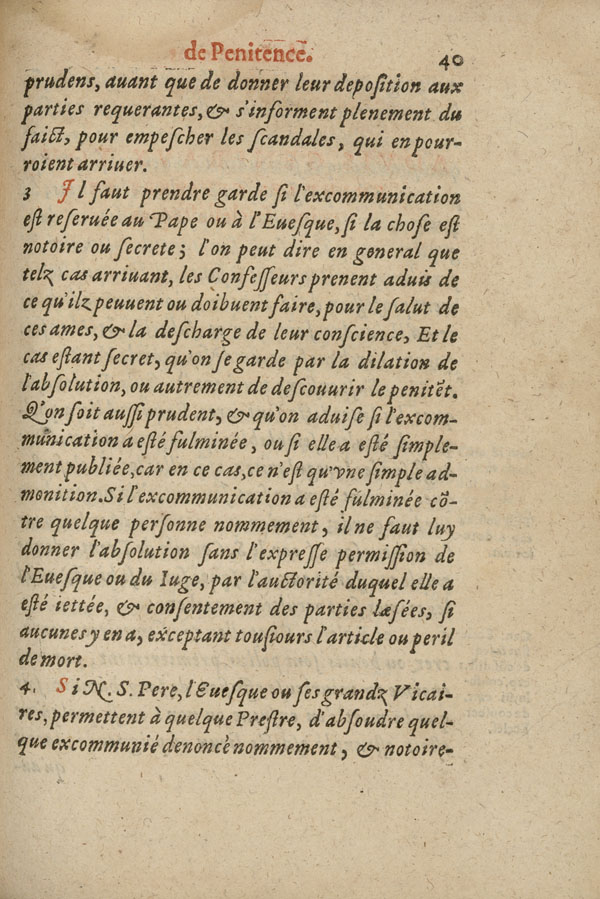 de Penitence.
40
prudens, auant que de donner leur deposition aux
parties requerantes, & s'informent plenement du
faict, pour empeſcher les ſcandales, qui en pour-
roient arriuer.
3 Il faut prendre garde ſi l'excommunication
eſt reſeruée au Pape ou à l'Eueſque, ſi la choſe eſt
notoire ou ſecrete; l'on peut dire en general que
telz cas arriuant, les Confeſſeurs prenent aduis de
ce qu'ilz peuuent ou doibuent faire, pour le ſalut de
ces ames, & la deſcharge de leur conſcience, Et le
cas eſtant ſecret, qu'on ſe garde par la dilation de
l'abſolution, ou autrement de deſcouurir le penitẽt.
Qu'on ſoit auſſi prudent, & qu'on aduiſe ſi l'excom-
munication a eſté fulminée, ou ſi elle a eſté ſimple-
ment publiée, car en ce cas, ce n'eſt qu'vne ſimple ad-
monition. Si l'excommunication a eſté fulminée cõ-
tre quelque perſonne nommement, il ne faut luy
donner l'abſolution ſans l'expreſſe permiſſion de
l'Eueſque ou du Iuge, par l'auctorité duquel elle a
eſté iettée, & conſentement des parties læſées, ſi
aucunes y en a, exceptant touſiours l'article ou peril
de mort.
4. Si N. S. Pere, l'Eueſque ou ſes grandz Vicai-
res, permettent à quelque Preſtre, d'abſoudre quel-
que excommunié denoncè nommement, & notoire-